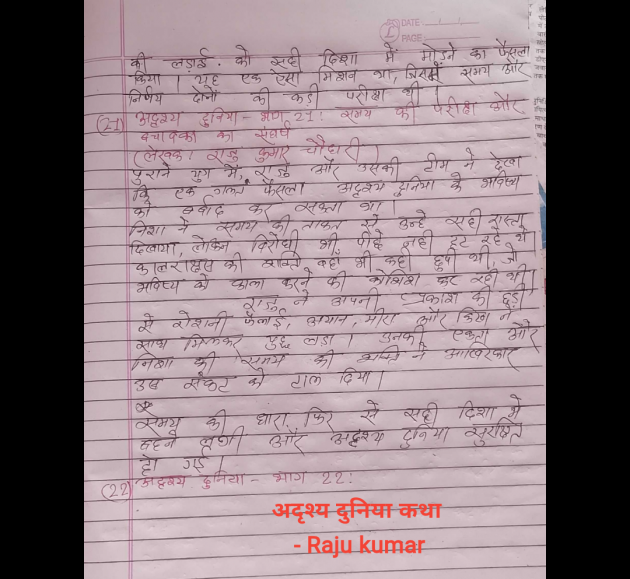 DATE
PAGE
की लड़ाई को सही दिशा में मोड़ने का फैसला
किया। यह एक ऐसा मिशन था, जिसमें समय और
निर्णय दोनों की कड़ी परीक्षा थी।
(21) अदृश्य दुनिया - भाग 21: समय की परीक्षा और
का संघर्ष
(लेखक: राजु कुमार चौदारी)
पुराने युग में, राजु और उसकी टीम ने देखा
कि एक गलत फैसला अदृश्य दुनिया के भविष्य
को बर्बाद कर सकता था।
निशा ने समय की ताकत से उन्हें सही रास्ता
दिखाया, लेकिन विरोधी भी पीछे नहीं हट रहे थे।
कालराक्षस की शक्ति वहाँ भी कहीं छुपी थी, जो
भविष्य को काला करने की कोशिश कर रही थी।
राजु ने अपनी प्रकाश की छड़ी
से रोशनी फैलाई, अमान, मीरा और ने
साथ मिलकर युद्ध लड़ा। उनकी एकता और
निशा की समय की शक्ति ने आखिरकार
उस संकट को टाल दिया।
समय की धारा फिर से सही दिशा में
बहने लगी और अदृश्य दुनिया सुरक्षित
हो गई।
(22) अदृश्य दुनिया - भाग 22:
अदृश्य दुनिया कथा
- Raju kumar